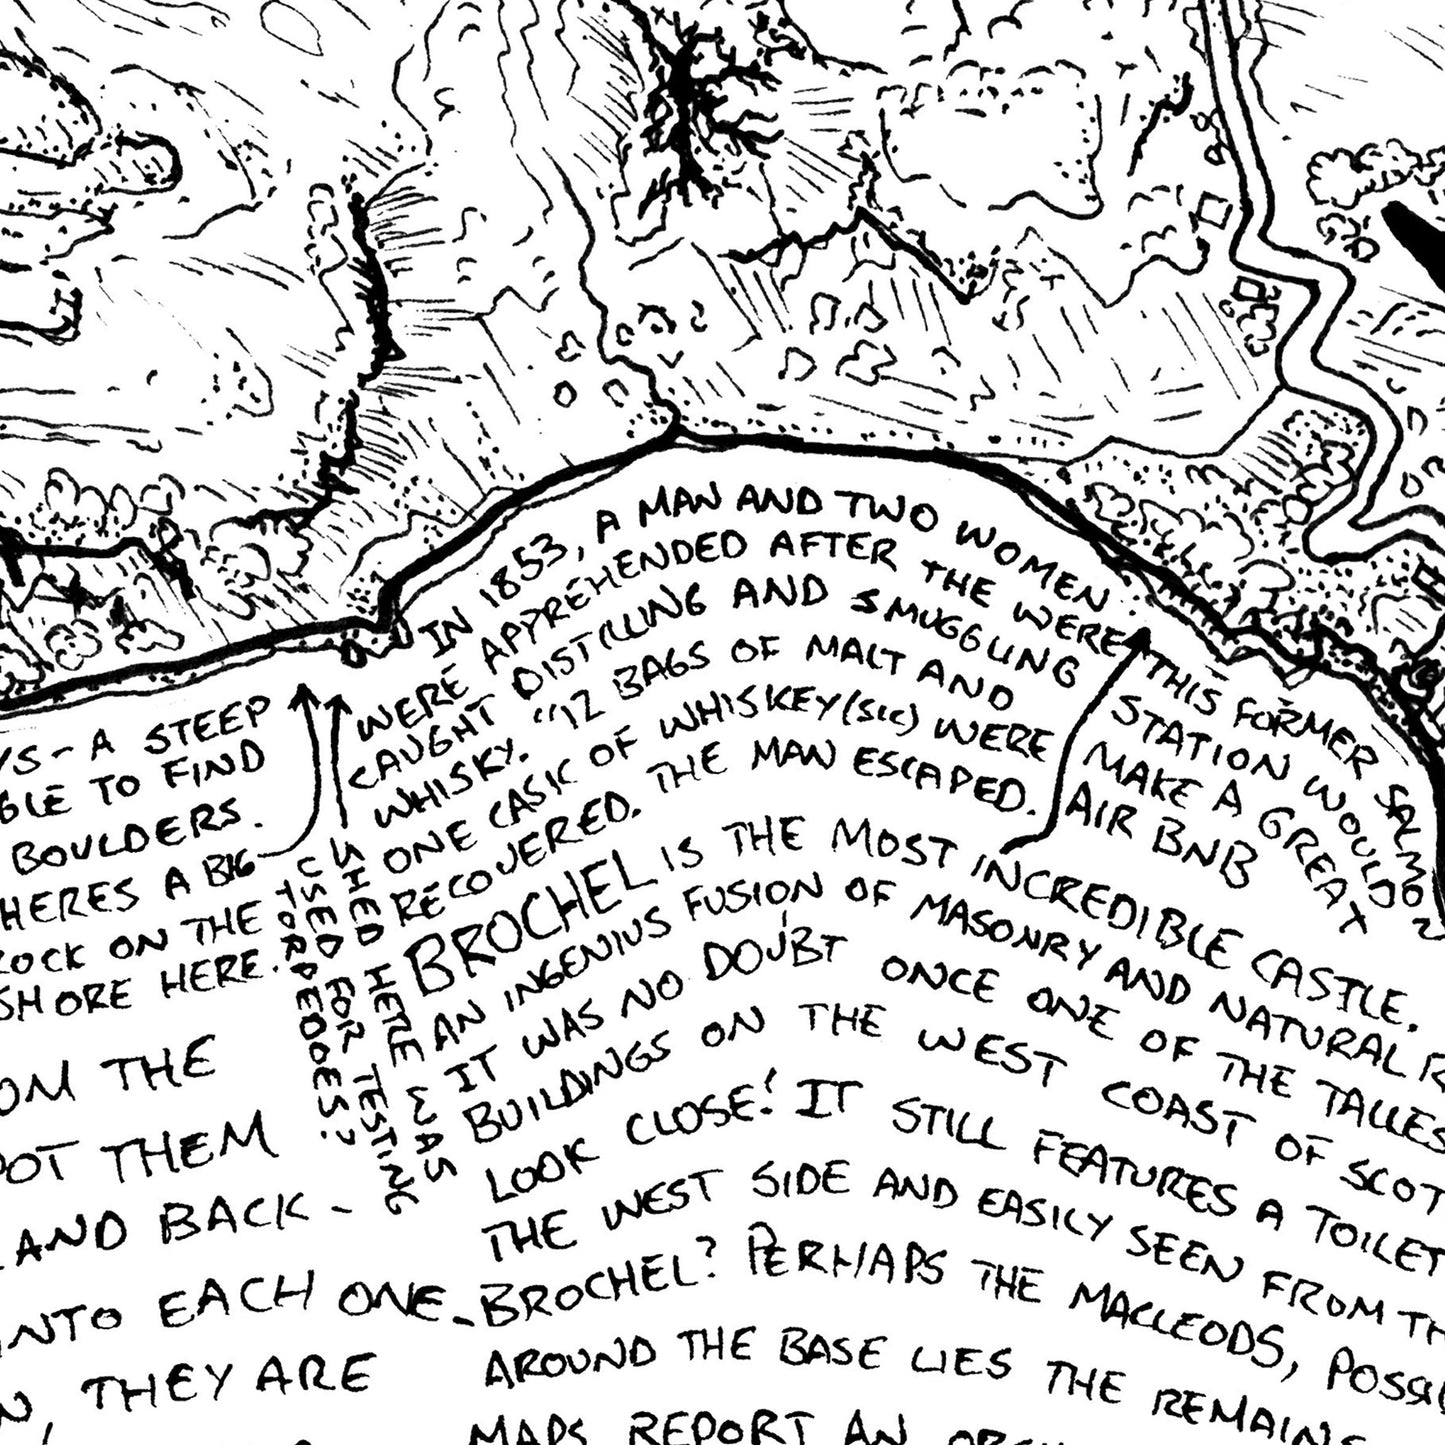 IN 1853, A MAN AND TWO WOMEN
WERE APPREHENDED AFTER THE WERE
CAUGHT DISTILLING AND SMUGGLING
WHISKY. "12 BAGS OF MALT AND
ONE CASK OF WHISKEY (SIC) WERE
RECOVERED. THE MAN ESCAPED.
THIS FORMER SALMON
STATION WOULD
MAKE A GREAT
AIR BNB
- A STEEP
TO FIND
BOULDERS.
HERES A BIG
ROCK ON THE
SHORE HERE.
SHED HERE WAS
USED FOR TESTING
TORPEDOES?
BROCHEL IS THE MOST INCREDIBLE CASTLE.
AN INGENIUS FUSION OF MASONRY AND NATURAL
IT WAS NO DOUBT ONCE ONE OF THE
BUILDINGS ON THE WEST COAST OF
LOOK CLOSE! IT STILL FEATURES A TOILET
THE WEST SIDE AND EASILY SEEN FROM
BROCHEL? PERHAPS THE MACLEODS,
AROUND THE BASE LIES THE REMAINS
MAPS REPORT AN
THE
THEM
AND BACK -
INTO EACH ONE
THEY ARE